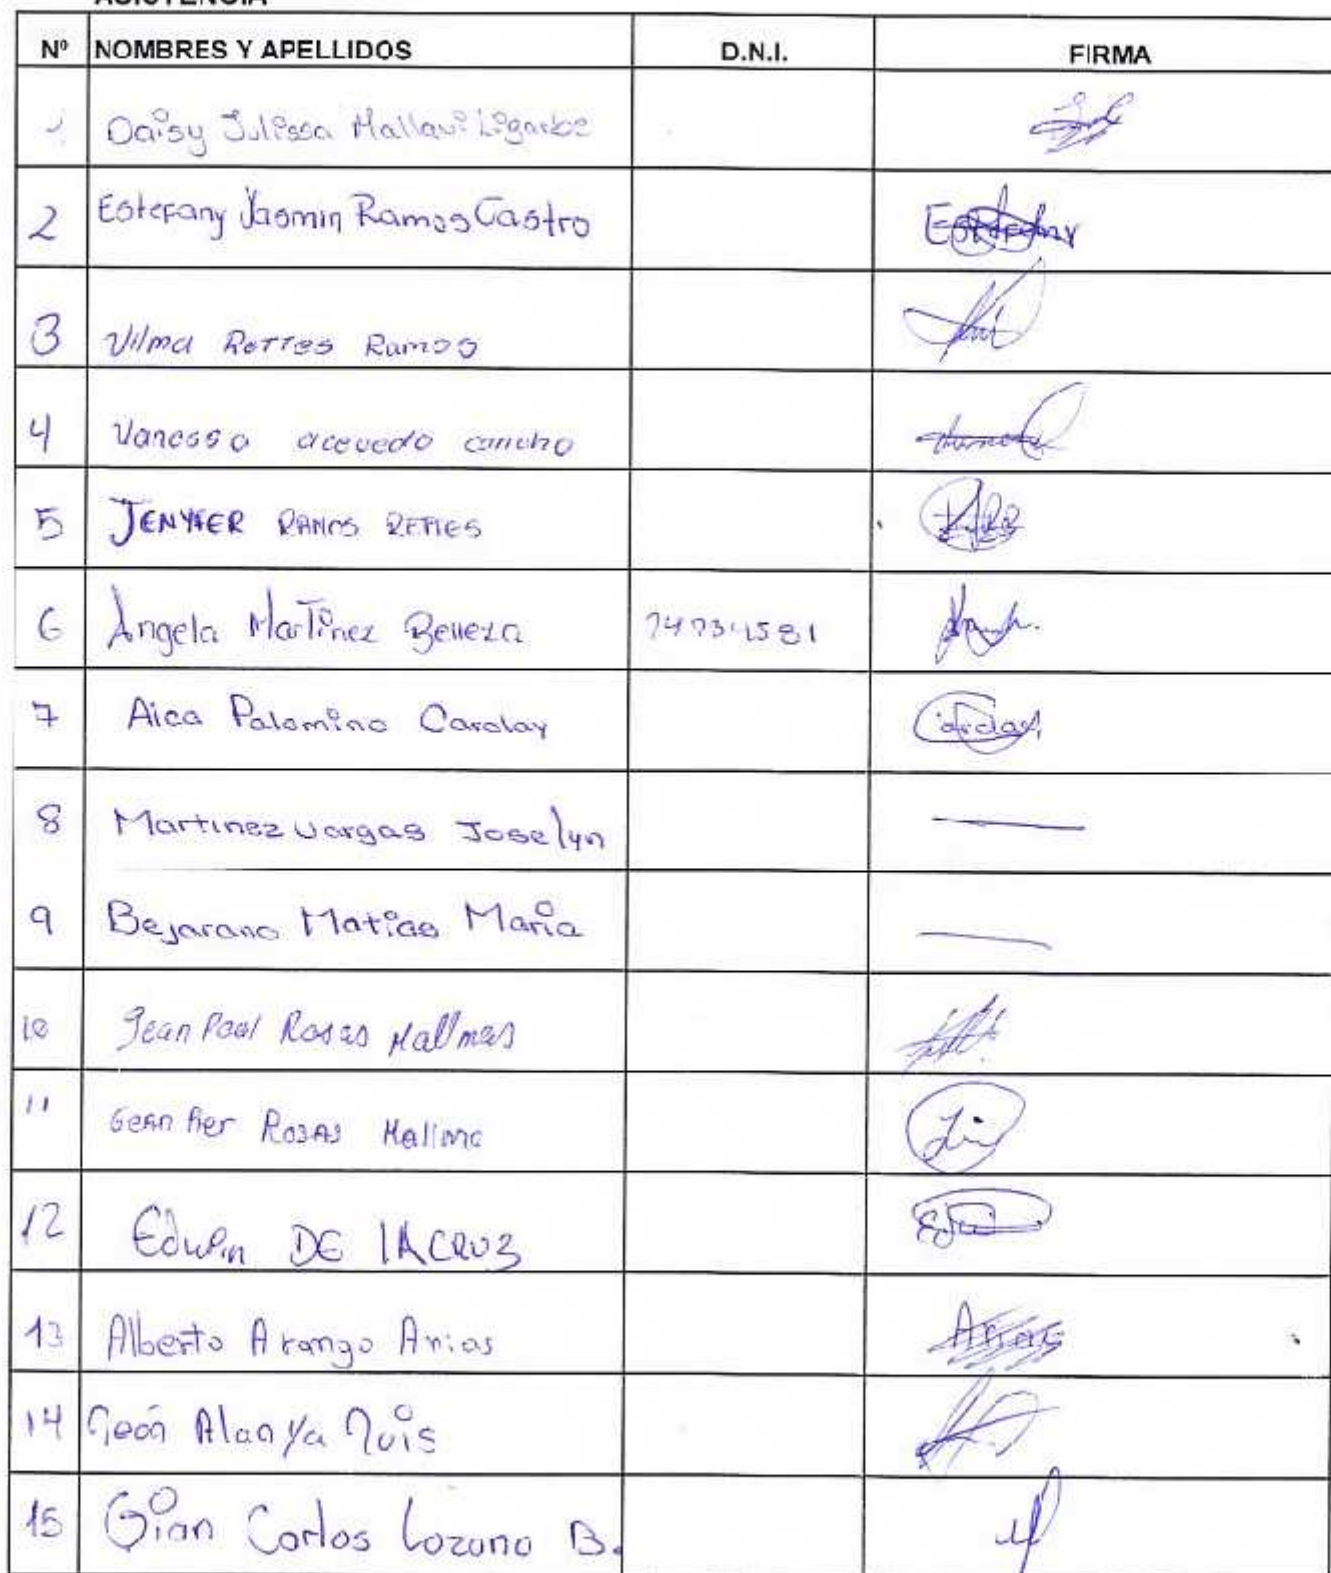 ASISTENCIA
Nº NOMBRES Y APELLIDOS D.N.I. FIRMA
1 Daisy Julissa Mallaui Ligarbe
2 Estefany Yasmin Ramos Castro Estefany
3 Vilma Rettes Ramos
4 Vanessa acevedo cancho
5 JENYFER RAMOS RETTES
6 Angela Martinez Belleza
7 Aica Palomino Carolay Carolay
8 Martinez vargas Joselyn
9 Bejarano Matias Maria
10 Jean Paul Rosas Mallmas
11 Gean Pier ROSAS Mallma
12 Edwin DE lA CRUZ
13 Alberto Arango Arias Arias
14 León Alanya Luis
15 Gian Carlos Lozano B.